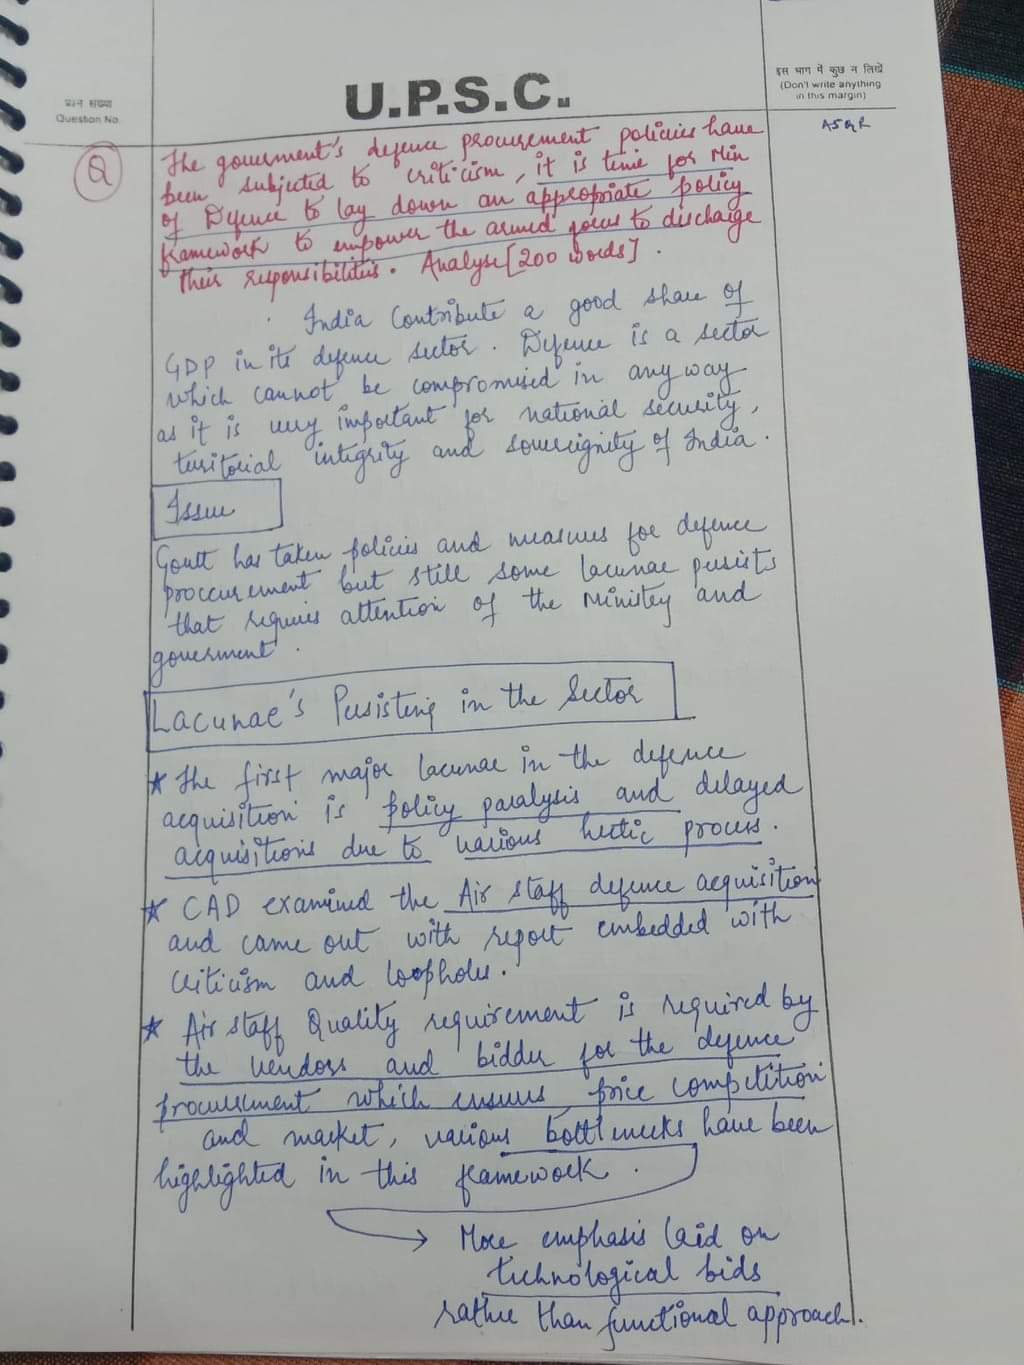 U.P.S.C.
प्रश्न संख्या
Question No.
इस भाग में कुछ न लिखें
(Don't write anything
in this margin)
ASQR
Q
The government's defence procurement policies have
been subjected to criticism, it is time for Min
of Defence to lay down an appropriate policy
framework to empower the armed forces to discharge
their responsibilities. Analyse [200 words].
India Contribute a good share of
GDP in its defence sector. Defence is a sector
which cannot be compromised in any way
as it is very important for national security,
territorial integrity and sovereignity of India.
Issue
Govtt has taken policies and measures for defence
proccurement but still some lacunae persists
that requires attention of the Ministry and
government.
Lacunae's Persisting in the Sector
* The first major lacunae in the defence
acquisition is policy paralysis and delayed
acquisitions due to various hectic process.
* CAD examined the Air staff defence acquisition
and came out with report embedded with
criticism and loopholes.
* Air staff Quality requirement is required by
the vendors and bidder for the defence
procurement which ensures price competition
and market, various bottlenecks have been
highlighted in this framework.
→ More emphasis laid on
technological bids
rather than functional approach.